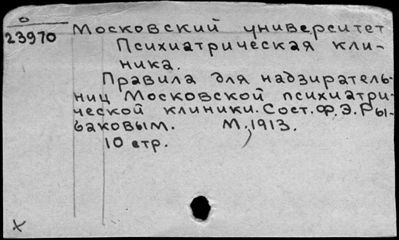 о
23970
Московский университет
Психиатрическая кли-
ника.
Правила для надзиратель-
ниц Московской психиатри-
ческой клиники. Сост. Ф.Э.Ры-
баковым. М., 1913.
10 стр.
х